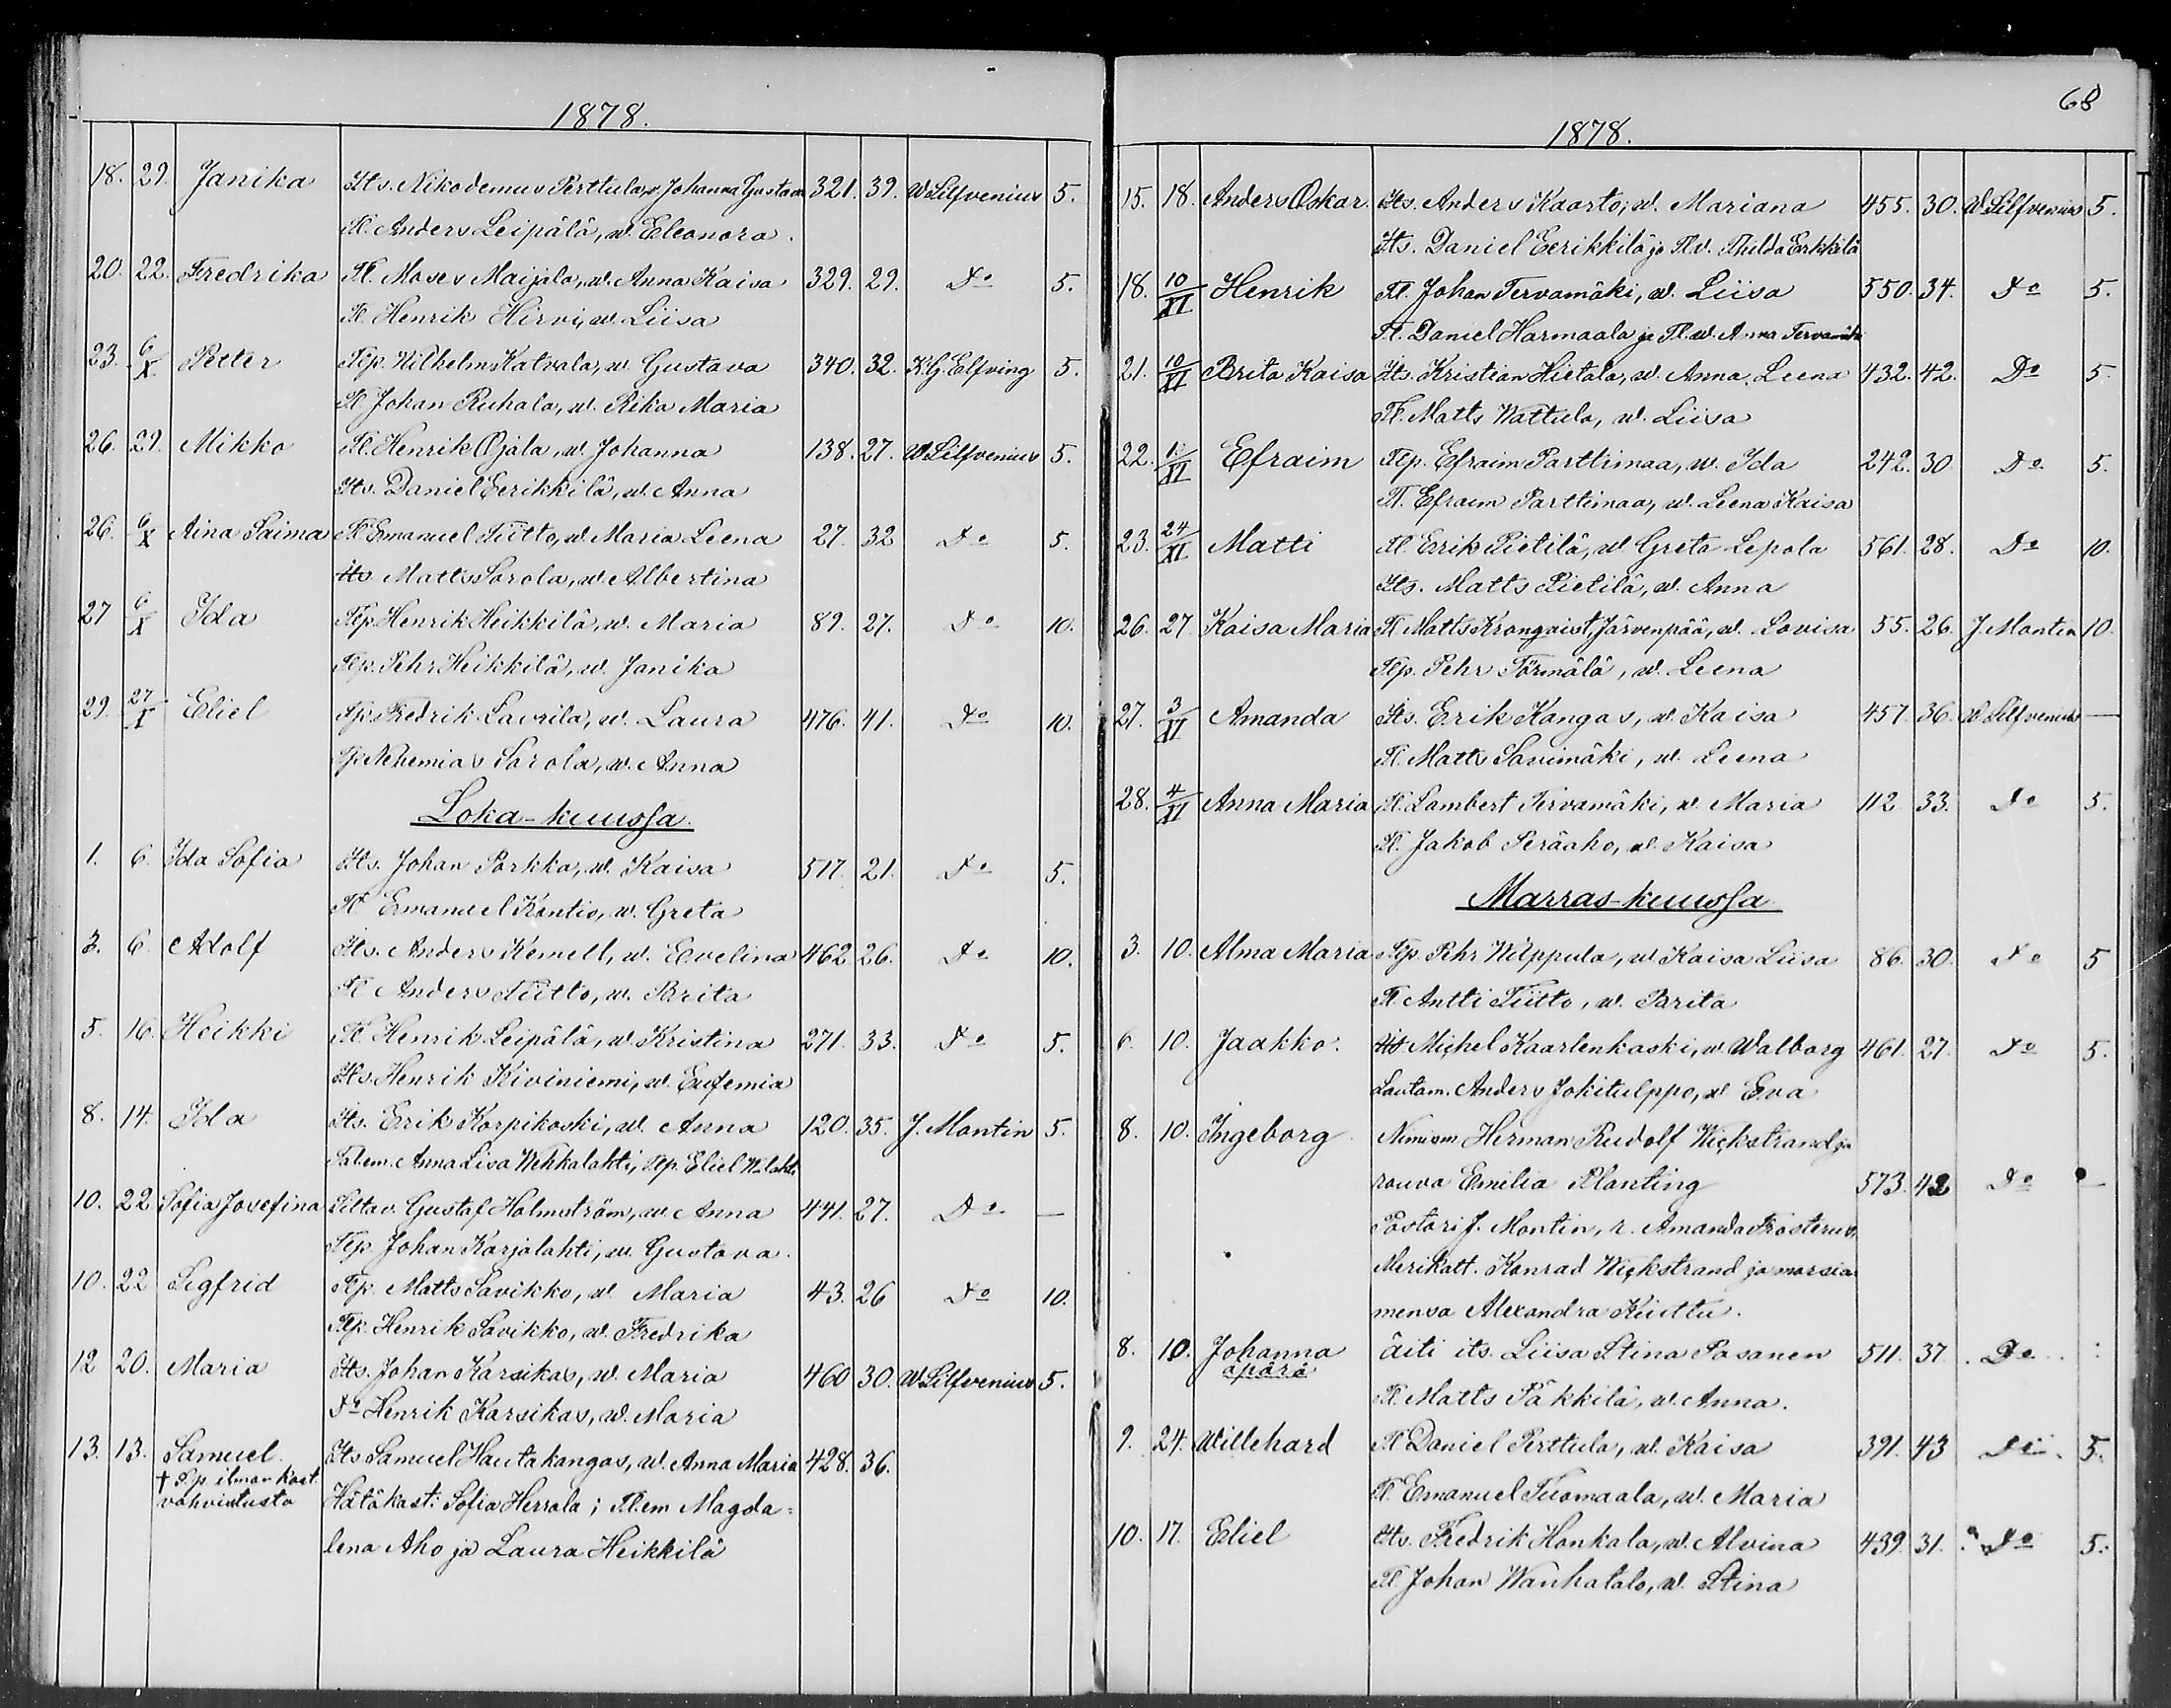 1878.
18. 29. Janika Its. Nikodemus Perttula, w. Johanna Gustava 321. 39. W Silfvenius 5.
Tl. Anders Leipälä, w. Eleonora.
20. 22. Fredrika Tl. Moses Maijala, w. Anna Kaisa 329. 29. Do 5.
Tl Henrik Hirvi, w. Liisa
23. 6/X Petter Tlp. Wilhelm Katvala, w. Gustava 340. 32. K.G. Elfving 5.
Tl Johan Ruhala, w. Rika Maria
26. 29. Mikko Tl. Henrik Ojala, w. Johanna 138. 27. W Silfvenius 5.
Its. Daniel Eerikkilä, w. Anna
26. 6/X Aina Saima Tl Emanuel Tiitto, w. Maria Leena 27. 32 Do 5.
Its. Matts Sorola, w. Albertina
27 6/X Ida Tlp Henrik Heikkilä, w. Maria 89. 27. Do 10.
Tlp. Pehr Heikkilä, w. Janika
29. 27/X Eliel Tlp. Fredrik Laurila, w. Laura 476. 41. Do 10.
Tlp Nehemias Sorola, w. Anna
Loka-kuussa.
1. 6. Ida Sofia Its. Johan Porkka, w. Kaisa 517. 21. Do 5.
Tl Emanuel Kontio, w. Greta
3. 6. Adolf Its. Anders Kemell, w. Evelina 462. 26. Do 10.
Tl Anders Tiitto, w. Brita
5. 16. Heikki Tl. Henrik Leipälä, w. Kristina 271. 33. Do 5.
Its. Henrik Kiviniemi, w. Eufemia
8. 14. Ida Its. Erik Korpikoski, w. Anna 120. 35. J. Montin 5.
Tal.em. Anna Lisa Wehkalahti, Tlp. Eliel W-lahti
10. 22. Sofia Josefina Siltav. Gustaf Holmström, w. Anna 441. 27. Do —
Tlp. Johan Karjalahti, w. Gustava.
10. 22 Sigfrid Tlp. Matts Savikko, w. Maria 43. 26 Do 10.
Tlp. Henrik Savikko, w. Fredrika
12 20. Maria Its. Johan Karsikas, w. Maria 460 30. W Silfvenius 5.
Do Henrik Karsikas, w. Maria
13. 13. Samuel. Its Samuel Hautakangas, w. Anna Maria 428. 36.
† Tlp. ilman kast.
vahvistusta Hätäkast: Sofia Herrala; Tl.em Magda=
lena Aho ja Laura Heikkilä
68
1878.
15. 18. Anders Oskar. Its. Anders Kaarto, w. Mariana 455. 30. W Silfvenius 5.
Its. Daniel Eerikkilä ja Tl.v. Thilda Eerkkilä
18. 10/XI Henrik Tl. Johan Tervamäki, w. Liisa 550. 34. Do 5.
Tl. Daniel Harmaala ja Tl.w. Anna Tervamäki
21. 10/XI Brita Kaisa Its. Kristian Hietala, w. Anna Leena 432. 42. Do 5.
Tl. Matts Wattula, w. Liisa
22. 1./XI Efraim Tlp. Efraim Parttimaa, w. Ida 242. 30 Do 5.
Tl. Efraim Parttimaa, w. Leena Kaisa
23. 24/XI Matti Tl. Erik Pietilä, w. Greta Lepola 561. 28. Do 10.
Its. Matts Pietilä, w. Anna
26. 27 Kaisa Maria Tl Matts Kronqvist, Järvenpää, w. Lovisa 55. 26. J Montin 10.
Tlp. Pehr Törmälä, w. Leena
27. 3/XI Amanda Its. Erik Kangas, w. Kaisa 457. 36. W Silfvenius —
Tl. Matts Savimäki, w. Leena
28. 4/XI Anna Maria Tl. Lambert Tervamäki, w. Maria 112 33. Do 5.
Tl. Jakob Peräaho, w. Kaisa
Marras-kuussa
3. 10. Alma Maria Tlp. Pehr Wilppula, w. Kaisa Liisa 86. 30. Do 5
Tl. Antti Tiitto, w. Brita
6. 10. Jaakko. Its Michel Kaarlenkaski, w. Walborg 461. 27. Do 5.
Lautam. Anders Jokitulppo, w Eva
8. 10. Ingeborg Nimism Herman Rudolf Wickstrand ja
rouva Emilia Planting 573. 42 Do —
Pastori J. Montin, r. Amanda Frosterus,
Merikatt. Konrad Wickstrand ja morsia
mensa Alexandra Kiuttu.
8. 10. Johanna äiti its. Liisa Stina Pasanen 511. 37. Do
äpärä
Tl. Matts Päkkilä, w. Anna.
9. 24. Willehard Tl Daniel Perttula, w. Kaisa 391. 43 Do 5.
Tl. Emanuel Tuomaala, w. Maria
10. 17. Eliel Its. Fredrik Honkala, w. Alvina 439. 31. Do 5.
Tl Johan Wanhatalo, w. Stina